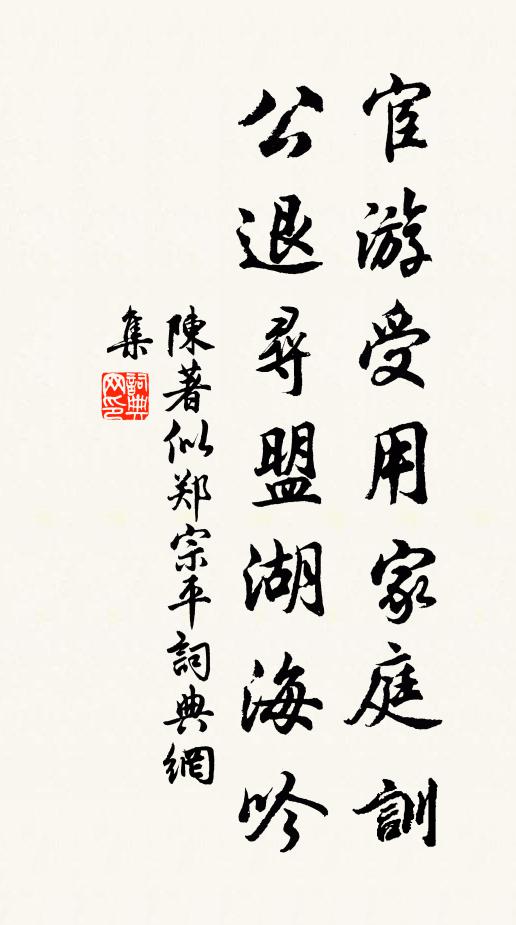 宦游受用家庭訓
公退尋盟湖海吟
陳著似郑宗平詞典網
集
詞典网印